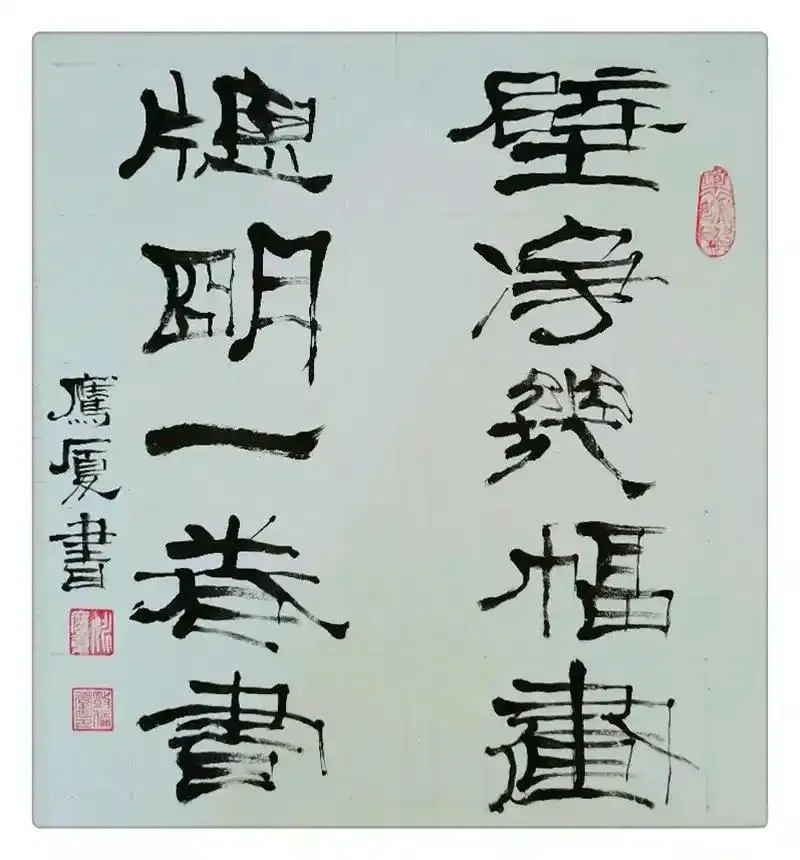 壁凈幾幅畫
牕明一卷書
鷹厦書